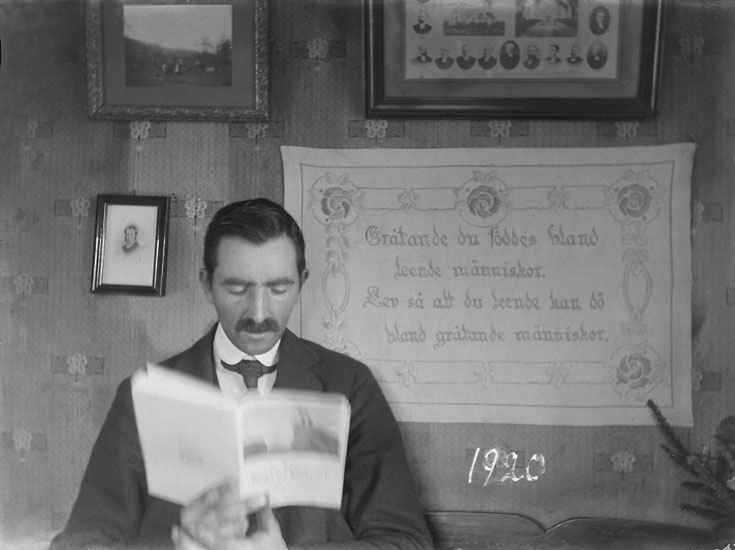 Gråtande du föddes bland
leende människor.
Lev så att du leende kan dö
bland gråtande människor.
1920